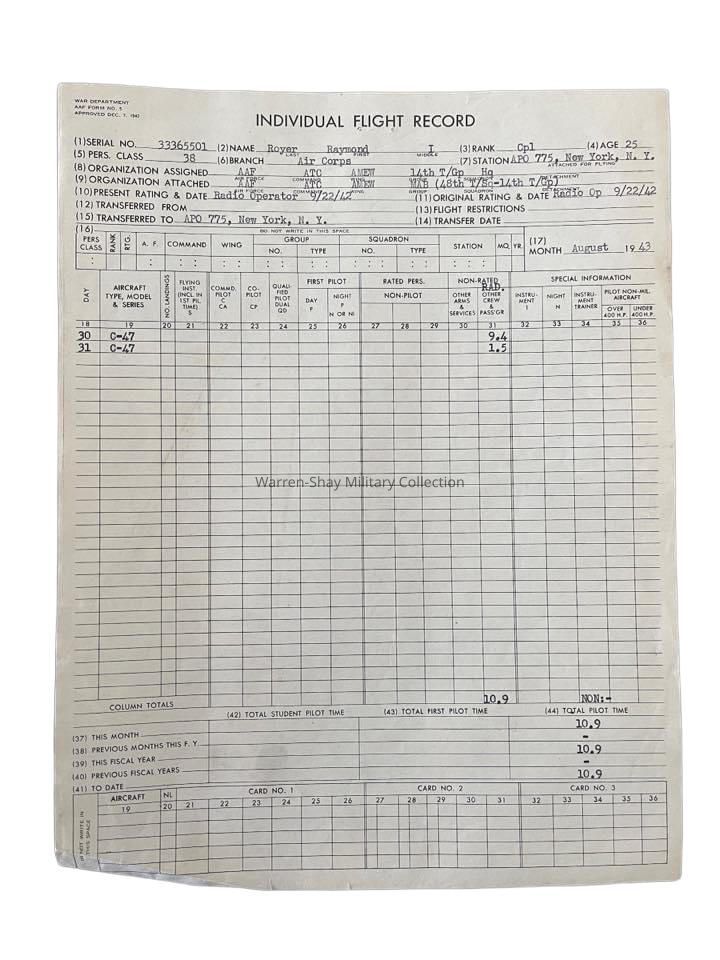 WAR DEPARTMENT
AAF FORM NO. 5
APPROVED DEC. 7, 1942
INDIVIDUAL FLIGHT RECORD
(1) SERIAL NO. 33365501 (2) NAME Royer Raymond I (3) RANK Cpl (4) AGE 25
LAST FIRST MIDDLE
(5) PERS. CLASS 38 (6) BRANCH Air Corps (7) STATION APO 775, New York, N. Y.
(8) ORGANIZATION ASSIGNED AAF ATC AMEW 14th T/Gp Hq ATTACHED FOR FLYING
AIR FORCE COMMAND WING GROUP SQUADRON DETACHMENT
(9) ORGANIZATION ATTACHED AAF ATC AMEW MAB (48th T/Sq-14th T/Gp)
AIR FORCE COMMAND WING GROUP SQUADRON DETACHMENT
(10) PRESENT RATING & DATE Radio Operator 9/22/42 (11) ORIGINAL RATING & DATE Radio Op 9/22/42
(12) TRANSFERRED FROM (13) FLIGHT RESTRICTIONS
(15) TRANSFERRED TO APO 775, New York, N. Y. (14) TRANSFER DATE
(16) DO NOT WRITE IN THIS SPACE
PERS CLASS RANK RTG. A. F. COMMAND WING GROUP NO. TYPE SQUADRON NO. TYPE STATION MO. YR. (17) MONTH August 19 43
DAY AIRCRAFT TYPE, MODEL & SERIES NO. LANDINGS FLYING INST. (INCL. IN 1ST. PIL. TIME) S COMMD. PILOT C CA CO-PILOT CP QUALI-FIED PILOT DUAL QD FIRST PILOT DAY P NIGHT P N OR NI RATED PERS. NON-PILOT NON-RATED RAD. OTHER ARMS & SERVICES OTHER CREW & PASS'GR SPECIAL INFORMATION INSTRU-MENT I NIGHT N INSTRU-MENT TRAINER PILOT NON-MIL. AIRCRAFT OVER 400 H.P. UNDER 400 H.P.
18 19 20 21 22 23 24 25 26 27 28 29 30 31 32 33 34 35 36
30 C-47 9.4
31 C-47 1.5
Warren-Shay Military Collection
COLUMN TOTALS 10.9 NON:-
(42) TOTAL STUDENT PILOT TIME (43) TOTAL FIRST PILOT TIME (44) TOTAL PILOT TIME
(37) THIS MONTH 10.9
(38) PREVIOUS MONTHS THIS F. Y. -
(39) THIS FISCAL YEAR 10.9
(40) PREVIOUS FISCAL YEARS -
(41) TO DATE 10.9
AIRCRAFT NL CARD NO. 1 CARD NO. 2 CARD NO. 3
19 20 21 22 23 24 25 26 27 28 29 30 31 32 33 34 35 36
NOT WRITE IN THIS SPACE